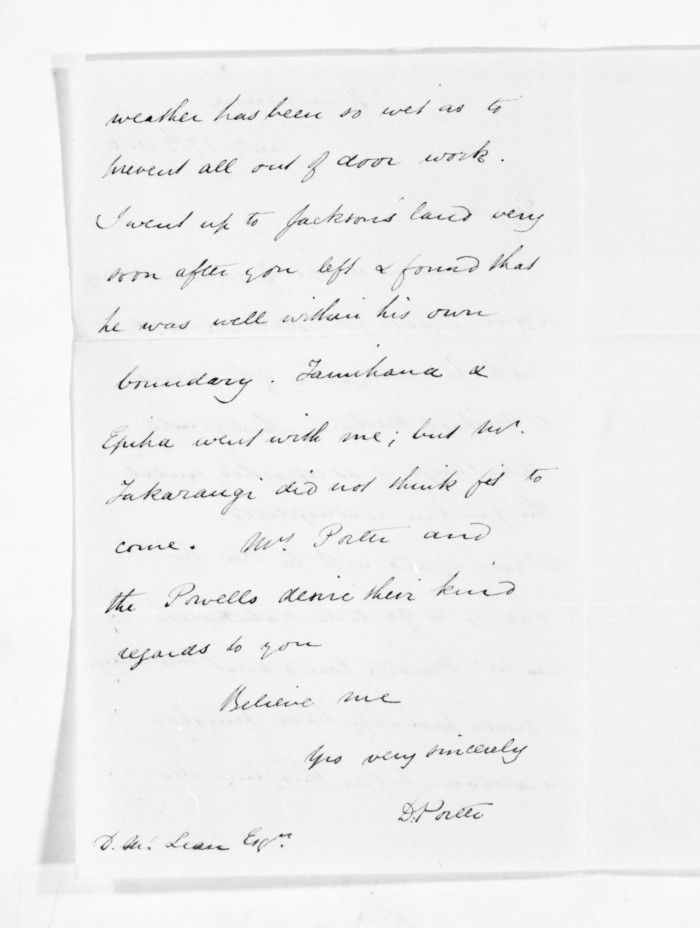 weather has been so wet as to
prevent all out of door work.
I went up to Jackson's land very
soon after you left & found that
he was well within his own
boundary. Tamihana &
Epiha went with me; but Mr.
Takarangi did not think fit to
come. Mrs Porter and
the Powells desire their kind
regards to you
Believe me
Yrs very sincerely
D. Porter
D. McLean Esqre.